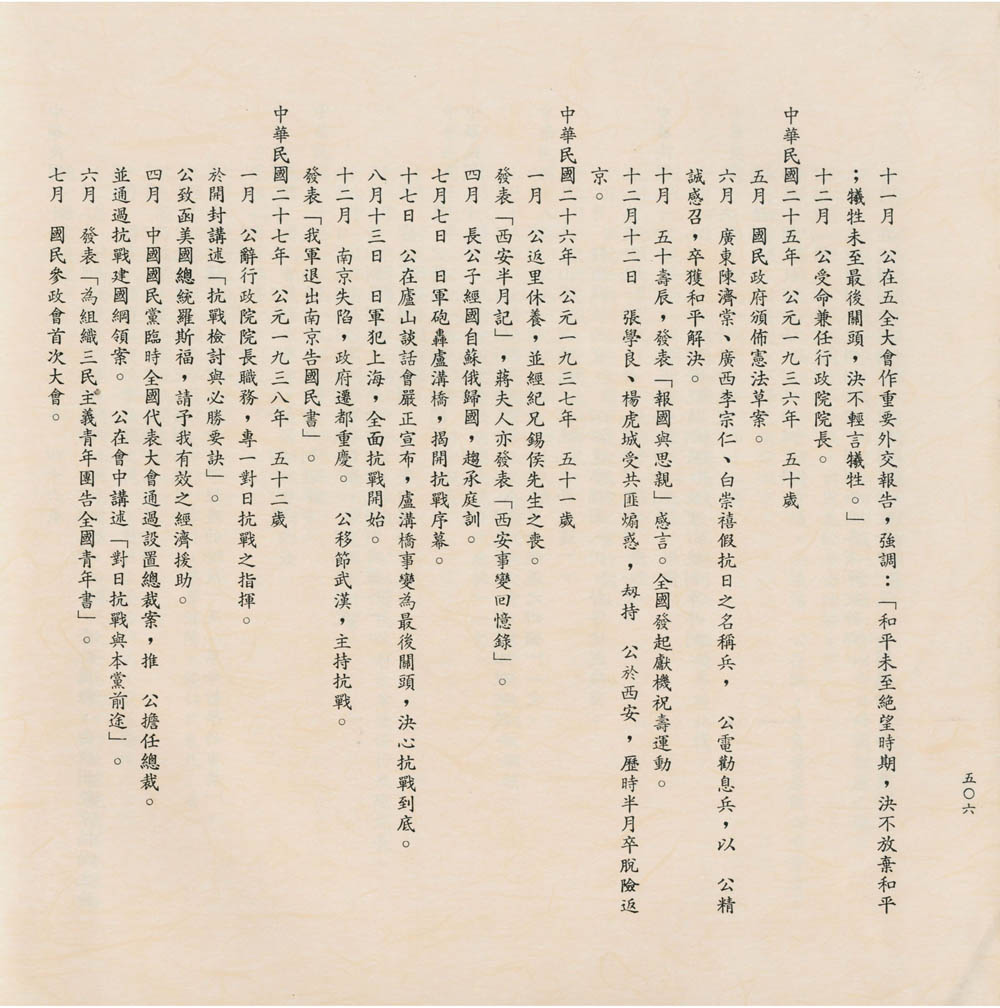 十一月　公在五全大會作重要外交報告，強調：「和平未至絕望時期，決不放棄和平
；犧牲未至最後關頭，決不輕言犧牲。」
十二月　公受命兼任行政院院長。
中華民國二十五年　公元一九三六年　五十歲
五月　國民政府頒佈憲法草案。
六月　廣東陳濟棠、廣西李宗仁、白崇禧假抗日之名稱兵，　公電勸息兵，以　公精
誠感召，卒獲和平解決。
十月　五十壽辰，發表「報國與思親」感言。全國發起獻機祝壽運動。
十二月十二日　張學良、楊虎城受共匪煽惑，刼持　公於西安，歷時半月卒脫險返
京。
中華民國二十六年　公元一九三七年　五十一歲
一月　公返里休養，並經紀兄錫侯先生之喪。
發表「西安半月記」，蔣夫人亦發表「西安事變回憶錄」。
四月　長公子經國自蘇俄歸國，趨承庭訓。
七月七日　日軍砲轟盧溝橋，揭開抗戰序幕。
十七日　公在廬山談話會嚴正宣布，盧溝橋事變為最後關頭，決心抗戰到底。
八月十三日　日軍犯上海，全面抗戰開始。
十二月　南京失陷，政府遷都重慶。　公移節武漢，主持抗戰。
發表「我軍退出南京告國民書」。
中華民國二十七年　公元一九三八年　五十二歲
一月　公辭行政院院長職務，專一對日抗戰之指揮。
於開封講述「抗戰檢討與必勝要訣」。
公致函美國總統羅斯福，請予我有效之經濟援助。
四月　中國國民黨臨時全國代表大會通過設置總裁案，推　公擔任總裁。
並通過抗戰建國綱領案。　公在會中講述「對日抗戰與本黨前途」。
六月　發表「為組織三民主義青年團告全國青年書」。
七月　國民參政會首次大會。
五〇六